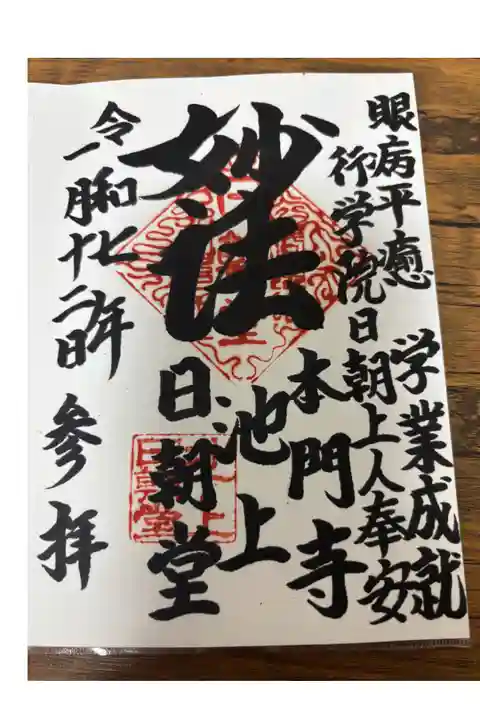 眼病平癒 学業成就
行学院日朝上人奉安
妙法
池上
本門寺
日朝堂
令和七年
一月十二日
参拝